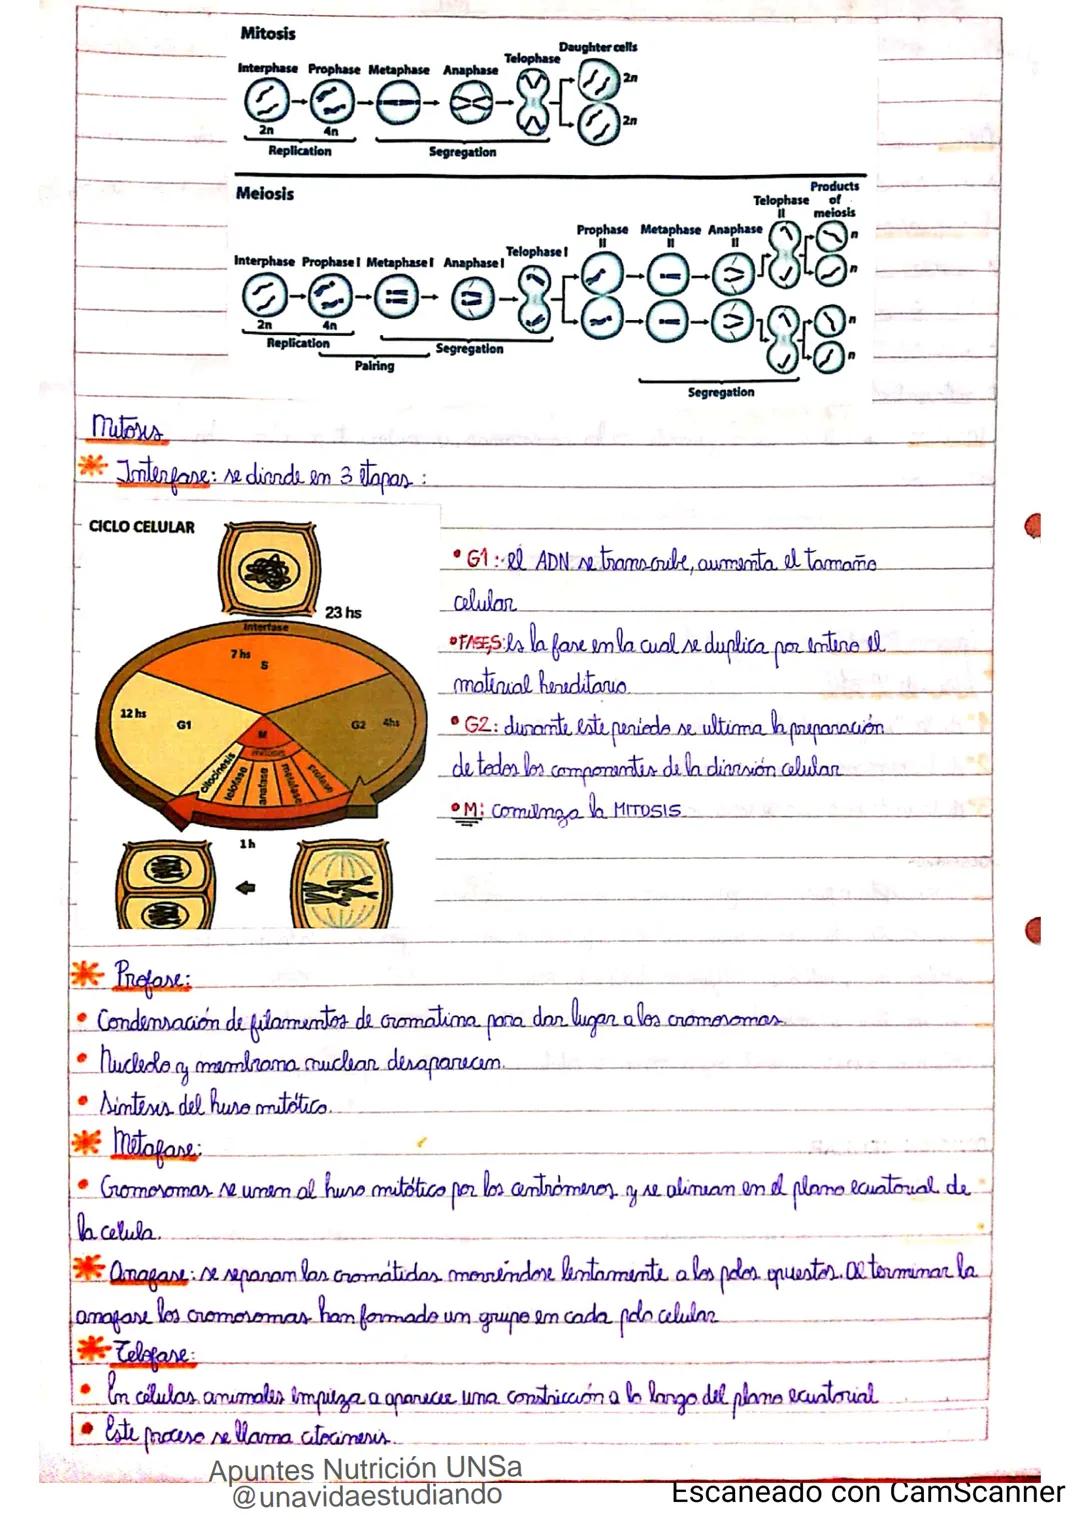 Mitosis
Daughter cells
Telophase
Interphase Prophase Metaphase Anaphase
2n
2n
2n 4n
Replication Segregation
Meiosis
Products of meiosis
Telophase II
Prophase II Metaphase II Anaphase II
Telophase I
Interphase Prophase I Metaphase I Anaphase I
n
n
2n 4n
n
n
Replication Segregation
Pairing
Segregation
Mitosis
Interfase: se divide en 3 etapas:
CICLO CELULAR
23 hs
Interfase
7 hs
S
12 hs
G1
G2 4hs
M
mitosis
citocinesis
telofase
anafase
metafase
profase
1h
• G1: el ADN se transcribe, aumenta el tamaño
celular
• FASE S: es la fase en la cual se duplica por entero el
material hereditario.
• G2: durante este periodo se ultima la preparación
de todos los componentes de la división celular
• M: comienza la MITOSIS.
Profase:
• Condensación de filamentos de cromatina para dar lugar a los cromosomas.
• Nucleolo y membrana nuclear desaparecen.
• Síntesis del huso mitótico.
Metafase:
• Cromosomas se unen al huso mitótico por los centrómeros y se alinean en el plano ecuatorial de
la celula.
Anafase: se separan las cromátidas moviéndose lentamente a los polos opuestos. Al terminar la
anafase los cromosomas han formado un grupo en cada polo celular
Telofase:
• En células animales empieza a aparecer una constricción a lo largo del plano ecuatorial
• Este proceso se llama citocinesis.
Apuntes Nutrición UNSa
@unavidaestudiando
Escaneado con CamScanner